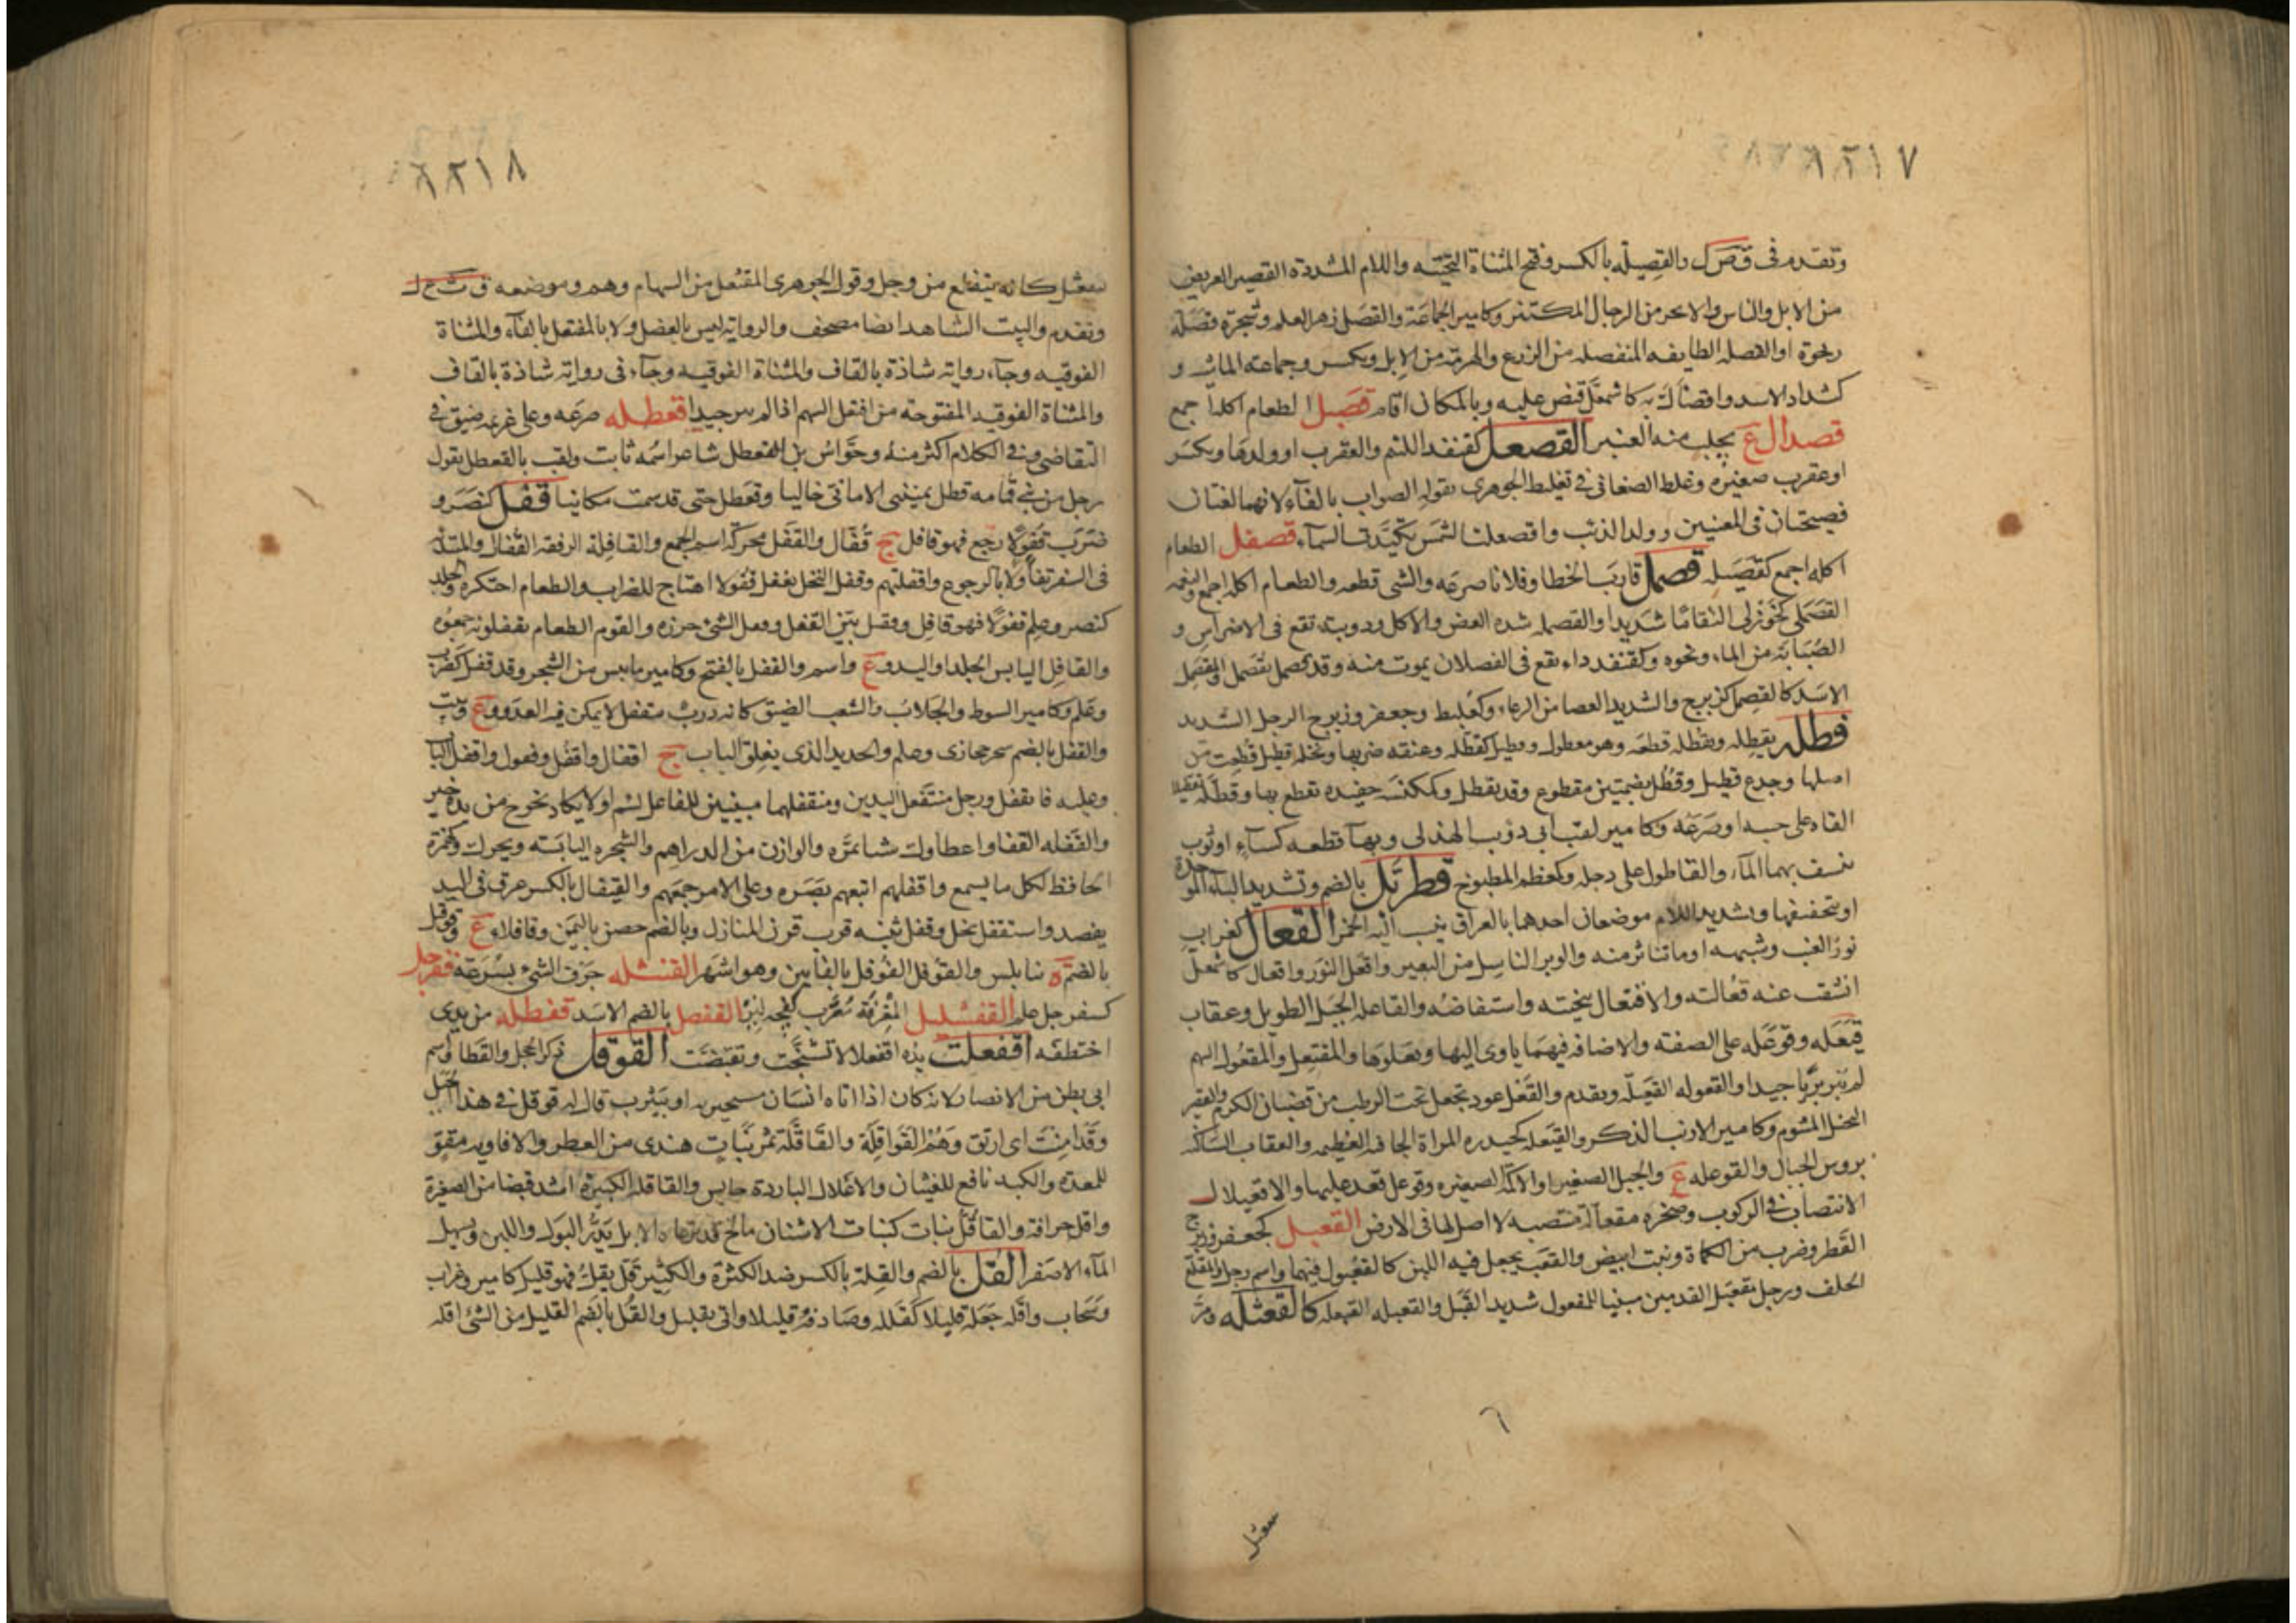 ٨٢١٧
وتقدم فى ق ص ل والقصيلة بالكسر وفتح المثناة التحتيه واللام المشددة القصير العريض
من الابل والناس والاحر من الرجال المكتنز وكامير الجماعة والقصل زهر السلم وشجرة قصلة
رخوة او القصله الطايفه المنفصله من الزرع والصرمة من الابل ويكسر وجماعة الماشيه و
كشداد الاسد واقصأل به كاشمعل قبض عليه وبالمكان اقام قصبل الطعام اكله اجمع
قصدال ع يجلب منه العنبر القصعل كقنفد اللئيم والعقرب او ولدها ويكسر
او عقرب صغيره وغلط الصغانى فى تغليط الجوهرى بقوله الصواب بالفآء لانهما لغتان
فصيحتان فى المعنيين وولد الذئب واقصعلت الشمس تكبدت السمآء قصفل الطعام
اكله اجمع كقصبله قصمل قارب الخطا وفلانا صرعه والشى قطعه والطعام اكله اجمع
القصملى كخوزلى التقاما شديدا والقصمله شدة العض والاكل ودويبة تقع فى الاضراس و
الصبابة من الماء ونحوه وكقنفد داء يقع فى الفصلان يموت منه وقد قصمل يقصمل والمقصمل
الاسد كالقصمل كزبرج والشديد العصا من الرعاء وكعلبط وجعفر وزبرج الرجل الشديد
قطله يقطله ويقطله قطعه وهو مقطول وقطيل كقطله وعنقه ضربها ونخلة قطيل قطعت من
اصلها وجذع قطيل وقطل بضمتين مقطوع وقد يقطل وكمكنسه حديده تقطع بها وقطله تقطيلا
القاه على جنبه او صرعه وكامير لقب ابى ذؤيب الهذلى وبهآ قطعه كسآء او ثوب
ينشف بهما المآء والقاطول على دجله وكمعظم المطبوخ قطربل بالضم وتشديد البآء الموحدة
او بتخفيفها وتشديد اللام موضعان احدهما بالعراق ينسب اليه الخمر القعال كغراب
نور العنب وشبهه او ما تناثر منه والوبر الناسل من البعير واقعل النور واقعال كاشمعل
انشقت عنه قعالته والاقتعال تنحيته واستنفاضه والقاعله الجبل الطويل وعقاب
قيعله وقوعله على الصفته والاضافه فيهما ياوى اليها ويعلوها والمقتعل والمقعول السهم
لم يبر بريا جيدا والقعوله القيعله وتقدم والقعل عود تجعل تحت الرطب من قضبان الكرم والقصر
البخل المشوم وكامير الارنب الذكر والقيعله كحيدره المراة الجافيه العظيمه والعقاب الساكنه
بروس الجبال والقوعله ع والجبل الصغير او الاكمة الصغيره وقوعل قعد عليها والاقعيلال
الانتصاب فى الركوب وصخره مقعالة منتصبه لا اصل لها فى الارض القعبل كجعفر وزبرج
القطر وضرب من الكماة ونبت ابيض والقعب يجعل فيه اللبن كالقعبول فيهما واسم رجل والمقلع
الحلف ورجل مقعبل القدمين مبنيا للمفعول شديد القبل والقعبله القبعله كالقعثله ومر
سعثل
٨٢١٨
يتقعثل كانه يتقلع من وحل وقول الجوهرى المقتعل من السهام وهم وموضعه ق ث ع ل
وتقدم والبيت الشاهد ايضا مصحف والرواية ليس بالعضل ولا بالمفتعل بالفآء والمثناة
الفوقيه وجآء رواية شاذة بالقاف والمثناة الفوقيه وجآء فى رواية شاذة بالقاف
والمثناة الفوقيه المفتوحة من اقتعل السهم اذا لم يبر جيدا قعطله صرعه وعلى غريمه ضيق فى
التقاضى وفى الكلام اكثر منه وحواس بن القعطل شاعر اسمه ثابت ولقب بالقعطل بقول
رجل من بنى قامه قطل يمنينى الامانى خاليا وقعطل حتى قد سمت مكانيا قفل كنصر و
ضرب قفولا رجع فهو قافل ج قفال والقفل محركة اسم الجمع والقافلة الرفقه القفال والمبتدئه
فى السفر تفاولا بالرجوع واقفلتهم وقفل الفحل يقفل قفولا اهتاج للضراب والطعام احتكره والجلد
كنصر وعلم قفولا فهو قافل وقفيل بين القفل وقفل الشى حرزه والقوم الطعام يقفلونه جمعوه
والقافل اليابس الجلد او اليد و ع واسم والقفل بالفتح وكامير ما يبس من الشجر وقد قفل كضرب
وعلم وكامير السوط والجلاب والشعب الضيق كانه درب مقفل لا يمكن فيه العدو و ع ونبت
والقفل بالضم شجر حجازى وعلم والحديد الذى يغلق به الباب ج اقفال واقفل وقفول واقفل الباب
وعليه فانقفل ورجل متقفل اليدين ومقتفلهما مبنيين للفاعل لئيم او لا يكاد يخرج من يده خير
والقفله القفا واعطاوك شيا بمره والوازن من الدراهم والشجره اليابسه ويحرك وكهمزة
الحافظ لكل ما يسمع واقفلهم اتبعهم بصره وعلى الامر جمعهم والقيفال بالكسر عرق فى اليد
يفصد واستقفل بخل وقفل ثنيه قرب قرن المنازل وبالضم حصن باليمن وقافلاء ع وقوفل
بالضم ة بنابلس والقوفل الفوفل بالفآئين وهو اشهر القفشله جرف الشئ بسرعة قفرجل
كسفرجل علم القفشليل المغرفة معرب كفجه ليز القفصل بالضم الاسد قفطله من يدى
اختطفه اقفعلت يده اقفعلالا تشنجت وتقبضت القوقل ذكر الحجل والقطا واسم
ابى بطن من الانصار لانه كان اذا اتاه انسان مستجير به او بيثرب قال له قوقل فى هذا الجبل
وقد امنت اى ارتق وهم القواقلة والقاقلة ثمر نبات هندى من العطر والافاويه مقو
للمعدة والكبد نافع للغثيان والاعلال الباردة حابس والقاقله الكبيرة اشد قبضا من الصغيرة
واقل حرافة والقاقلى نبات كنبات الاشنان مالح قد ترعاه الابل يدر البول واللبن ويسهل
المآء الاصفر القل بالضم والقلة بالكسر ضد الكثرة والكثير قل يقل فهو قليل كامير وغراب
وسحاب واقله جعله قليلا كقلله وصادفه قليلا واتى بقليل والقل بالضم القليل من الشئ اقله